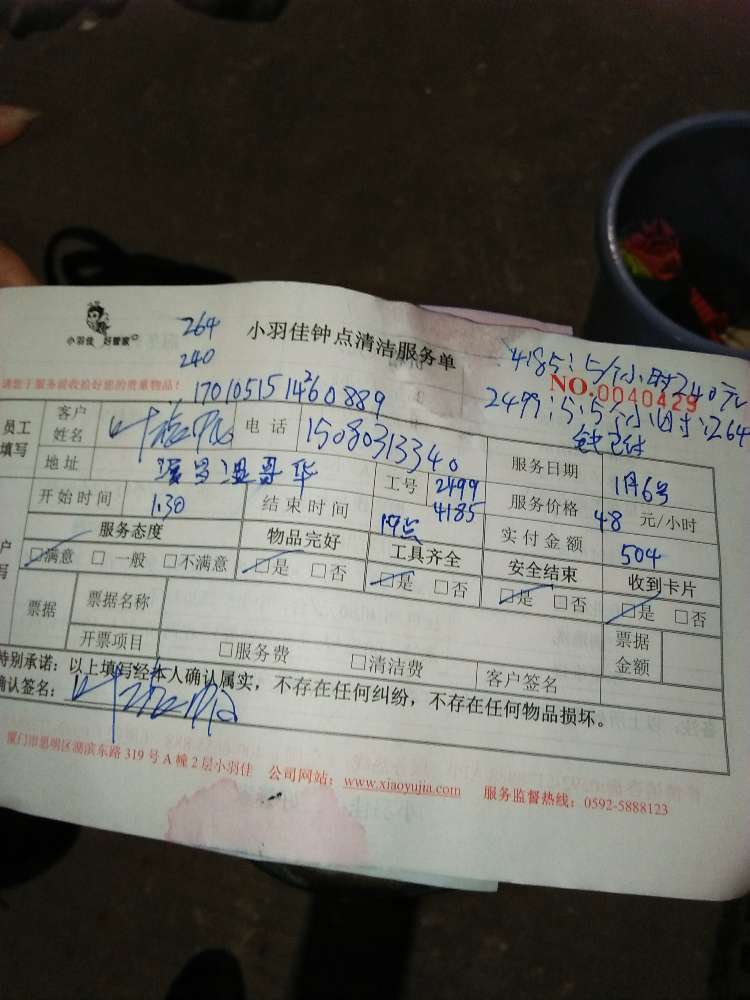 小羽佳 好管家
264
240
小羽佳钟点清洁服务单
4185:5个小时240元
NO.0040429
2499:5.5个小时:264
钱已付
请您于服务前收拾好您的贵重物品!
员工填写
客户姓名
电话 15080313340
服务日期 1月6号
地址
温哥华
工号 2499
4185
服务价格 48 元/小时
开始时间 1.30
结束时间
实付金额 504
服务态度 物品完好 工具齐全 安全结束 收到卡片
□满意 □一般 □不满意 □是 □否 □是 □否 □是 □否 □是 □否
票据
票据名称
票据金额
开票项目 □服务费 □清洁费 客户签名
特别承诺:以上填写经本人确认属实,不存在任何纠纷,不存在任何物品损坏。
确认签名:
厦门市思明区湖滨东路319号A幢2层小羽佳 公司网站:www.xiaoyujia.com 服务监督热线:0592-5888123